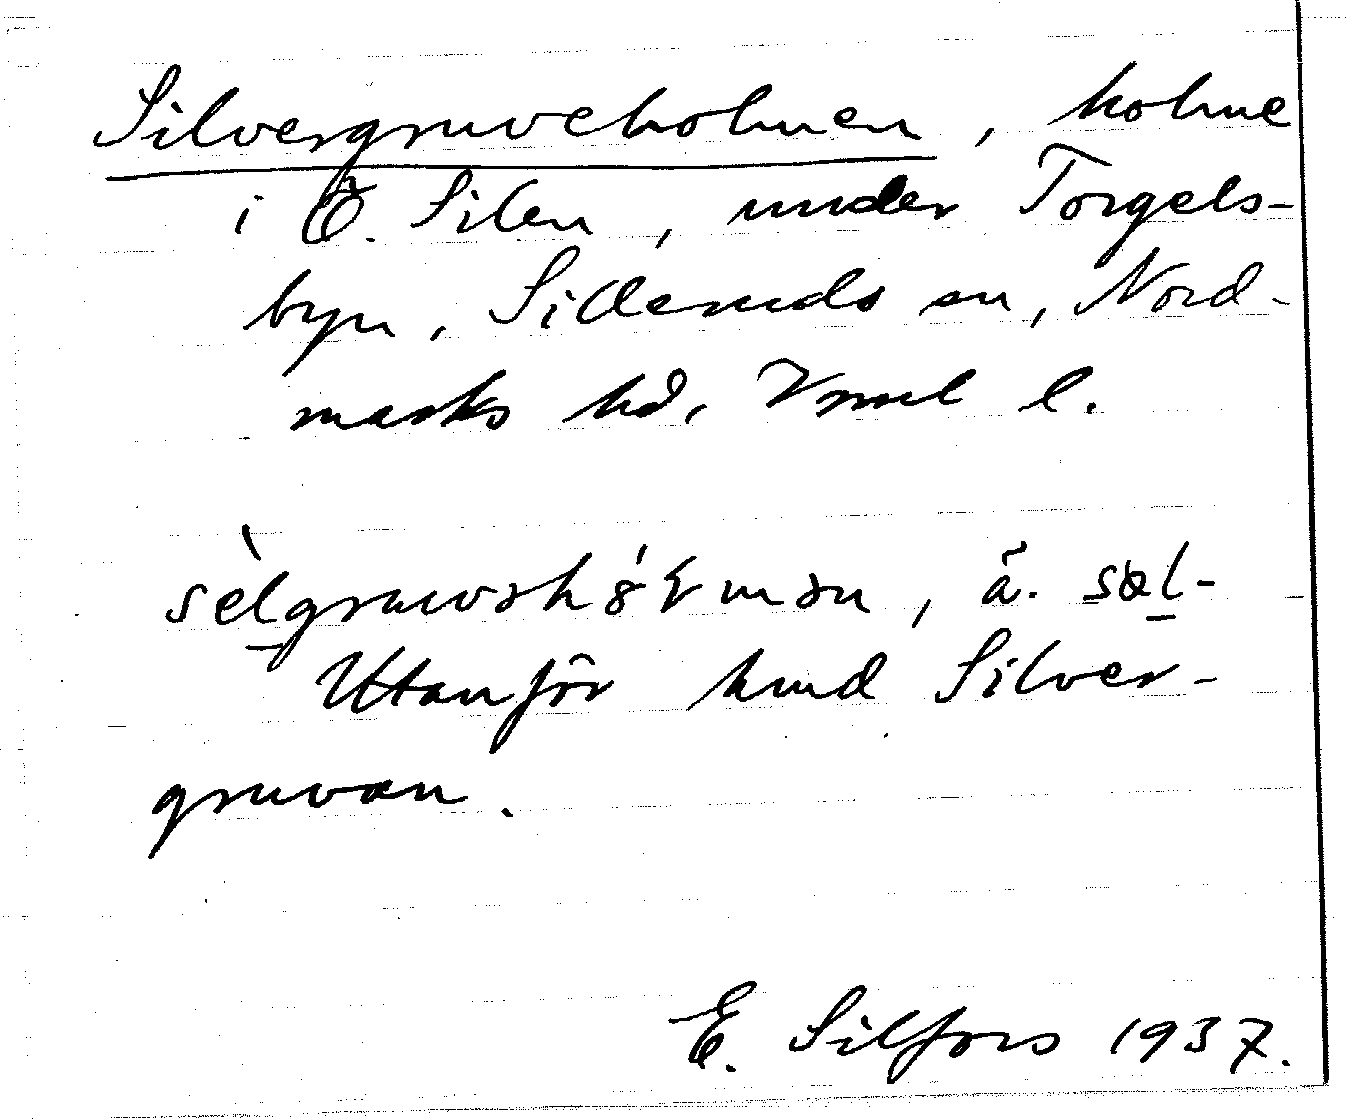 Silvergruveholmen, holme
i Ö. Silen, under Torgels-
byn, Silleruds sn, Nord-
marks hd, Vrml l.
Utanför hmd Silver-
gruvan.
E. Silfors 1937.